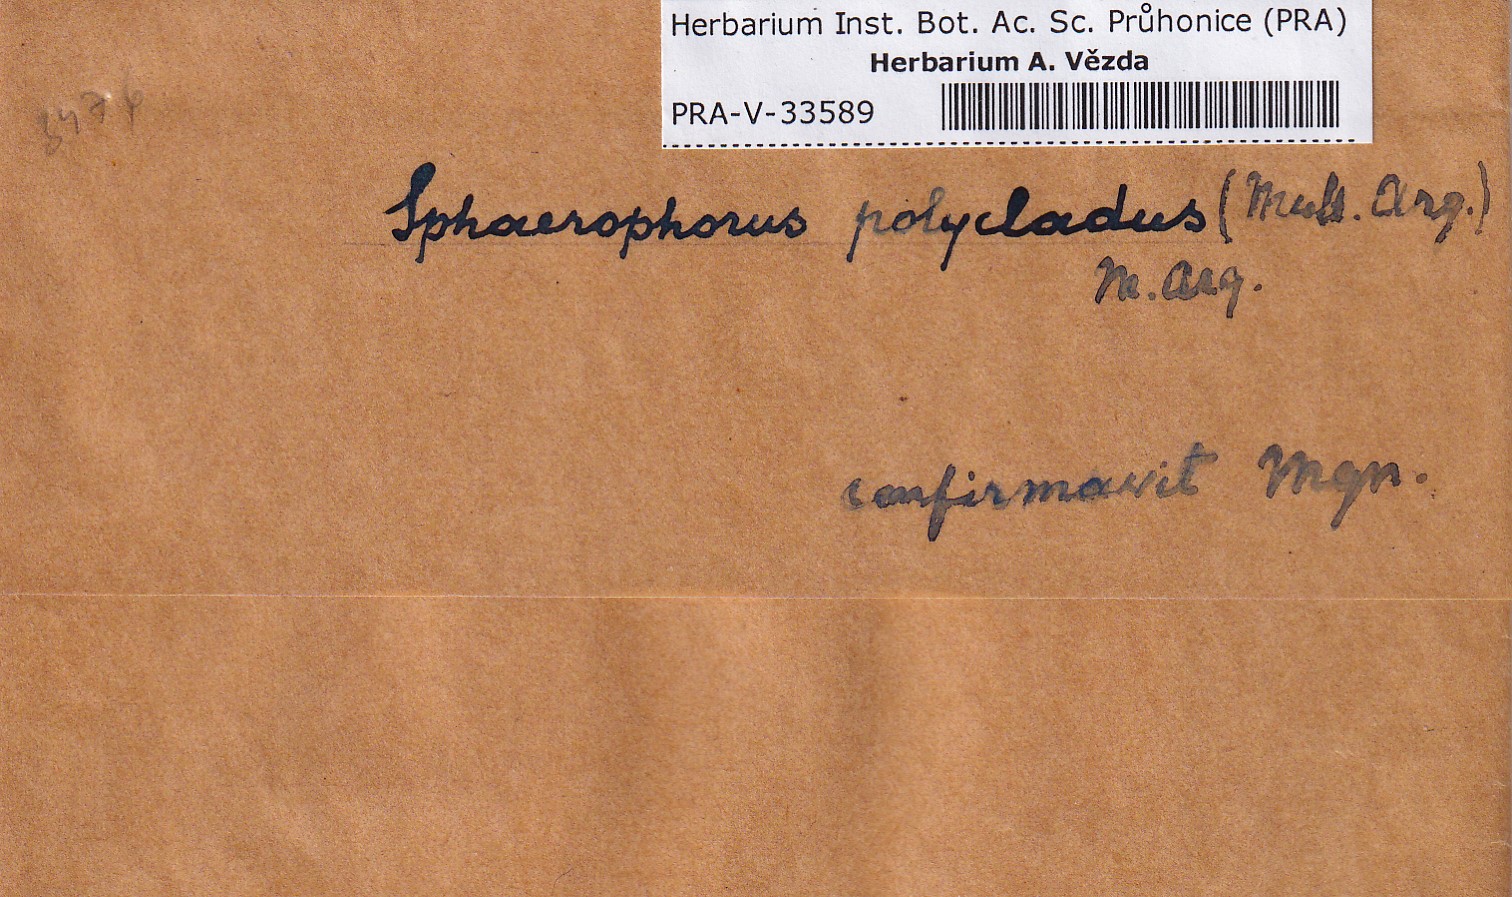 Herbarium Inst. Bot. Ac. Sc. Průhonice (PRA)
Herbarium A. Vězda
PRA-V-33589
Sphaerophorus polycladus (Müll. Arg.)
M. Arg.
confirmavit Mgn.